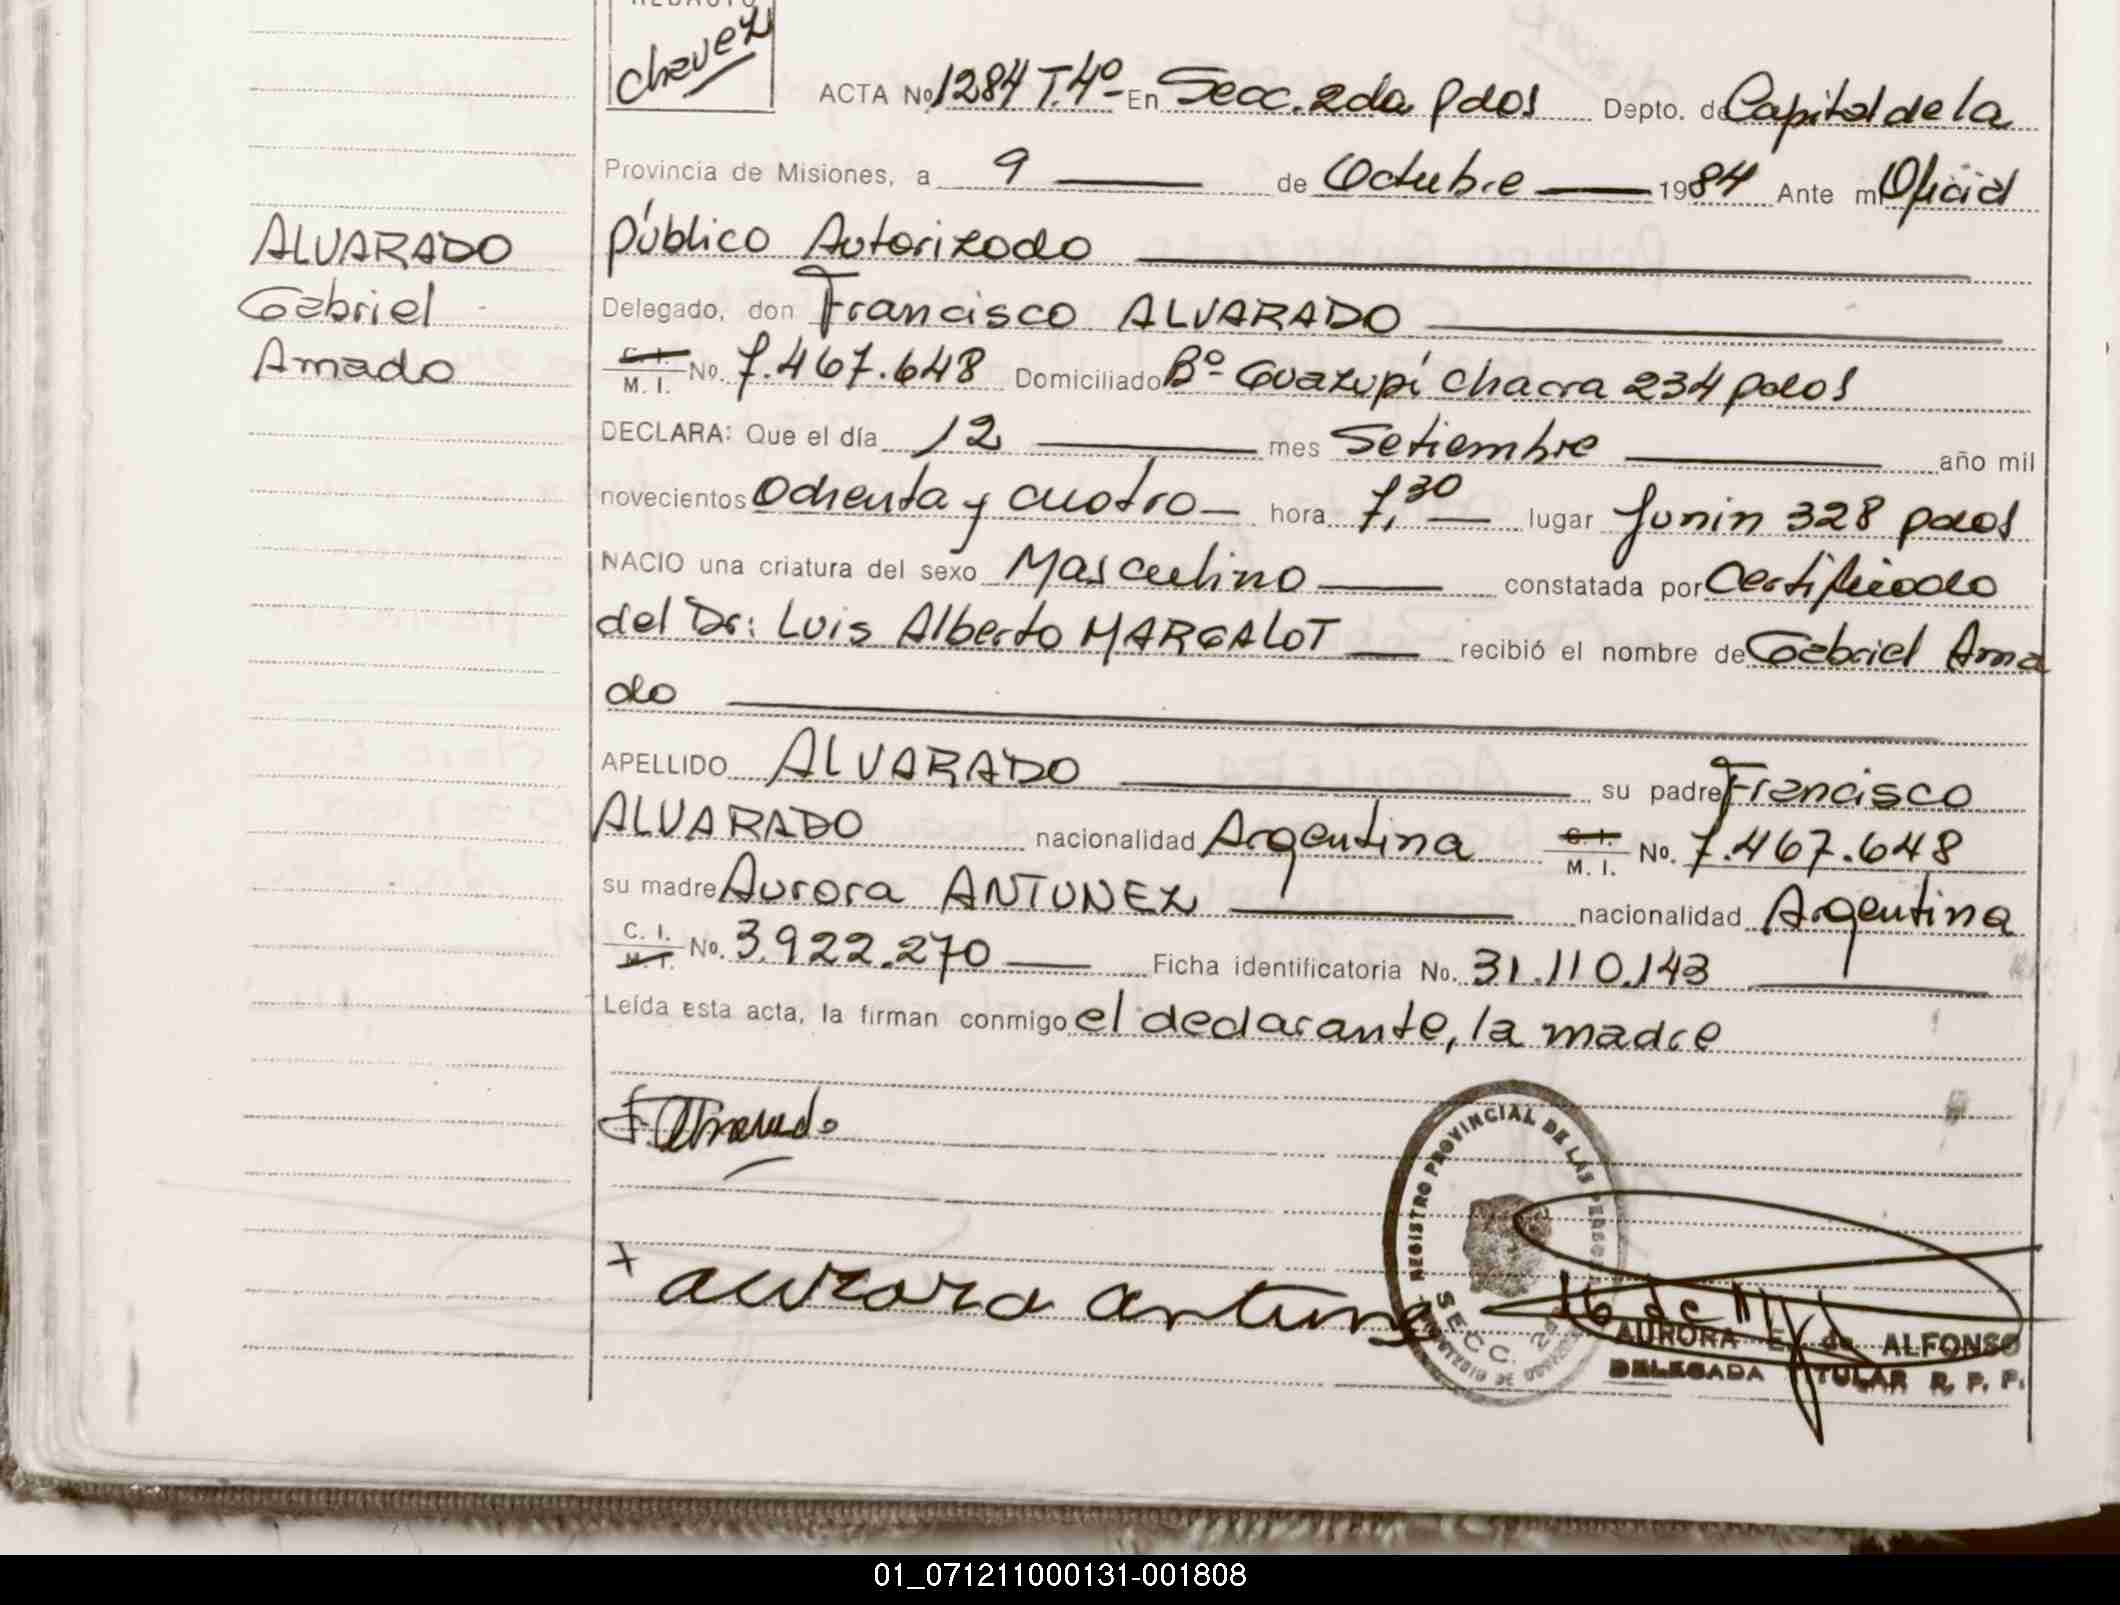 REDACTO
Chavez
ACTA No. 1284 T.4º- En Secc. 2da Pdas Depto. de Capital de la
Provincia de Misiones, a 9 de Octubre 1984 Ante mi Oficial
Público Autorizado
Delegado, don Francisco ALVARADO
C. I. M. I. No. 7.467.648 Domiciliado Bº Guazupí Chacra 234 Pdas
DECLARA: Que el día 12 mes Setiembre año mil
novecientos Ochenta y cuatro hora 7,30 lugar Junin 328 Pdas
NACIO una criatura del sexo Masculino constatada por Certificado
del Dr: Luis Alberto MARGALOT recibió el nombre de Gabriel Ama
do
APELLIDO ALVARADO su padre Francisco
ALVARADO nacionalidad Argentina C. I. M. I. No. 7.467.648
su madre Aurora ANTUNEZ nacionalidad Argentina
C. I. M. I. No. 3.922.270 Ficha identificatoria No. 31.110.143
Leída esta acta, la firman conmigo el declarante, la madre
ALVARADO
Gabriel
Amado
F. Alvarado
x aurora antunez
REGISTRO PROVINCIAL DE LAS PERSONAS
SECC. 2da
AURORA E. de ALFONSO
DELEGADA TITULAR R. P. P.
01_071211000131-001808